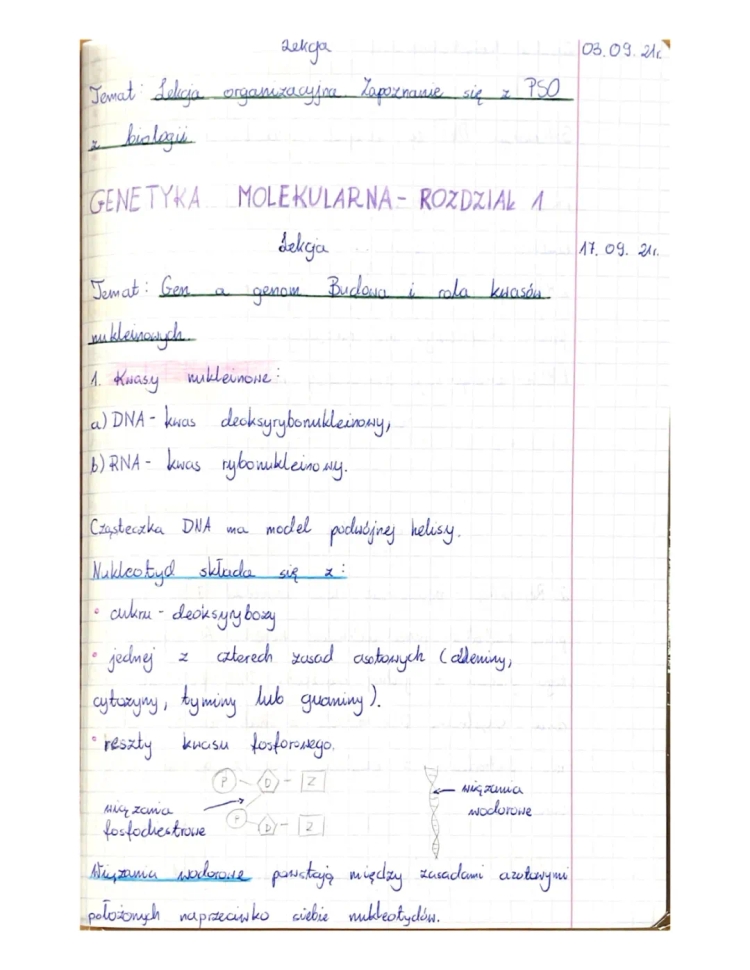 Lekcja 03.09.21r.
Temat: Lekcja organizacyjna. Zapoznanie się z PSO
z biologii.
GENETYKA MOLEKULARNA - ROZDZIAŁ 1
Lekcja 17.09.21r.
Temat: Gen a genom. Budowa i rola kwasów
nukleinowych.
1. Kwasy nukleinowe:
a) DNA - kwas deoksyrybonukleinowy,
b) RNA - kwas rybonukleinowy.
Cząsteczka DNA ma model podwójnej helisy.
Nukleotyd składa się z:
• cukru - deoksyrybozy
• jednej z czterech zasad azotowych (adeniny,
cytozyny, tyminy lub guaniny).
• reszty kwasu fosforowego.
P - D - Z
wiązania
fosfodiestrowe
P - D - Z
wiązania
wodorowe
Wiązania wodorowe powstają między zasadami azotowymi
położonych naprzeciwko siebie nukleotydów.